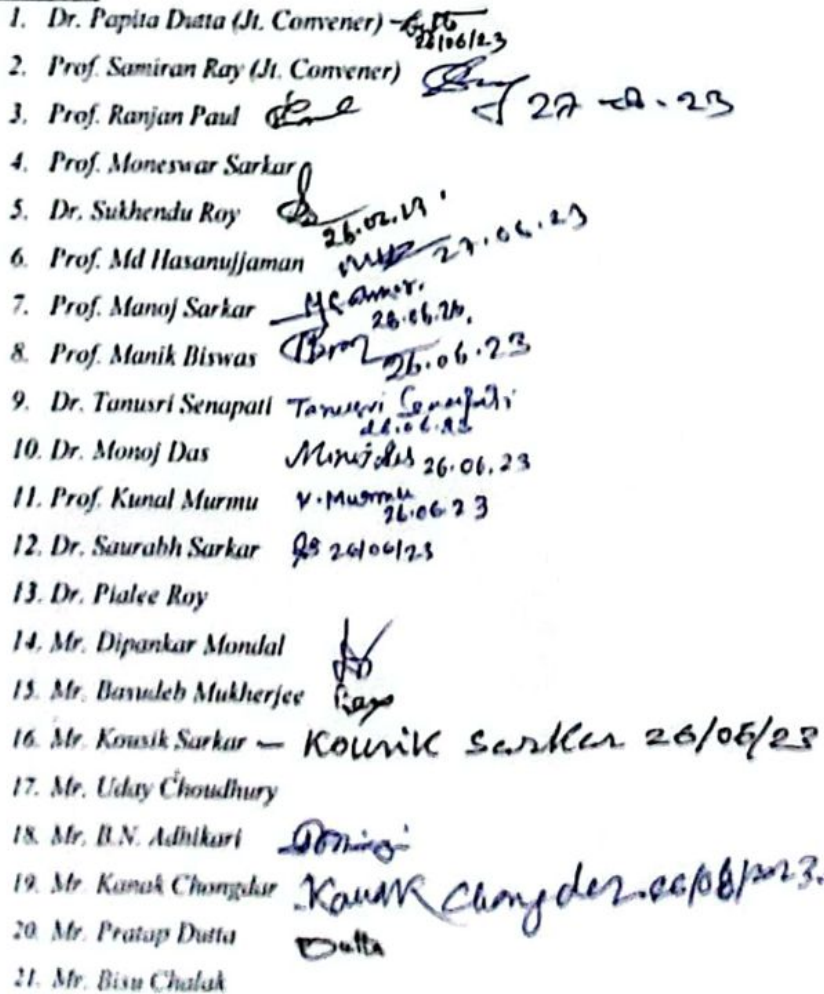 1. Dr. Papita Dutta (Jt. Convener) - 26/06/23
2. Prof. Samiran Ray (Jt. Convener) 27 - 23
3. Prof. Ranjan Paul
4. Prof. Moneswar Sarkar
5. Dr. Sukhendu Roy
6. Prof. Md Hasanujjaman 27.06.23
7. Prof. Manoj Sarkar
8. Prof. Manik Biswas 26.06.23
9. Dr. Tanusri Senapati Tanusri Senapati
10. Dr. Monoj Das Monoj Das 26.06.23
11. Prof. Kunal Murmu K. Murmu 26.06.23
12. Dr. Saurabh Sarkar 26/06/23
13. Dr. Pialee Roy
14. Mr. Dipankar Mondal
15. Mr. Basudeb Mukherjee
16. Mr. Kousik Sarkar - Kousik Sarkar 26/06/23
17. Mr. Uday Choudhury
18. Mr. B.N. Adhikari
19. Mr. Kanak Chongdar Kanak Chongder
20. Mr. Pratap Dutta Dutta
21. Mr. Bisu Chalak